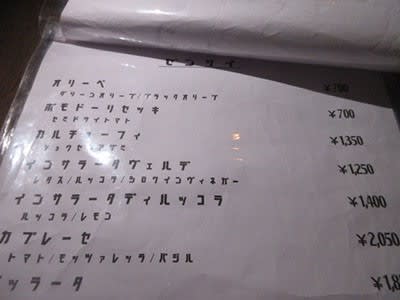 ゼンサイ
オリーベ ¥700
グリーンオリーブ/ブラックオリーブ
ポモドーリセッキ ¥700
セミドライトマト
カルチョーフィ ¥1,350
インサラータヴェルデ ¥1,250
レタス/ルッコラ/シロワインヴィネガー
インサラータディルッコラ ¥1,400
ルッコラ/レモン
カプレーセ ¥2,050
トマト/モッツァレッラ/バジル
ッラータ